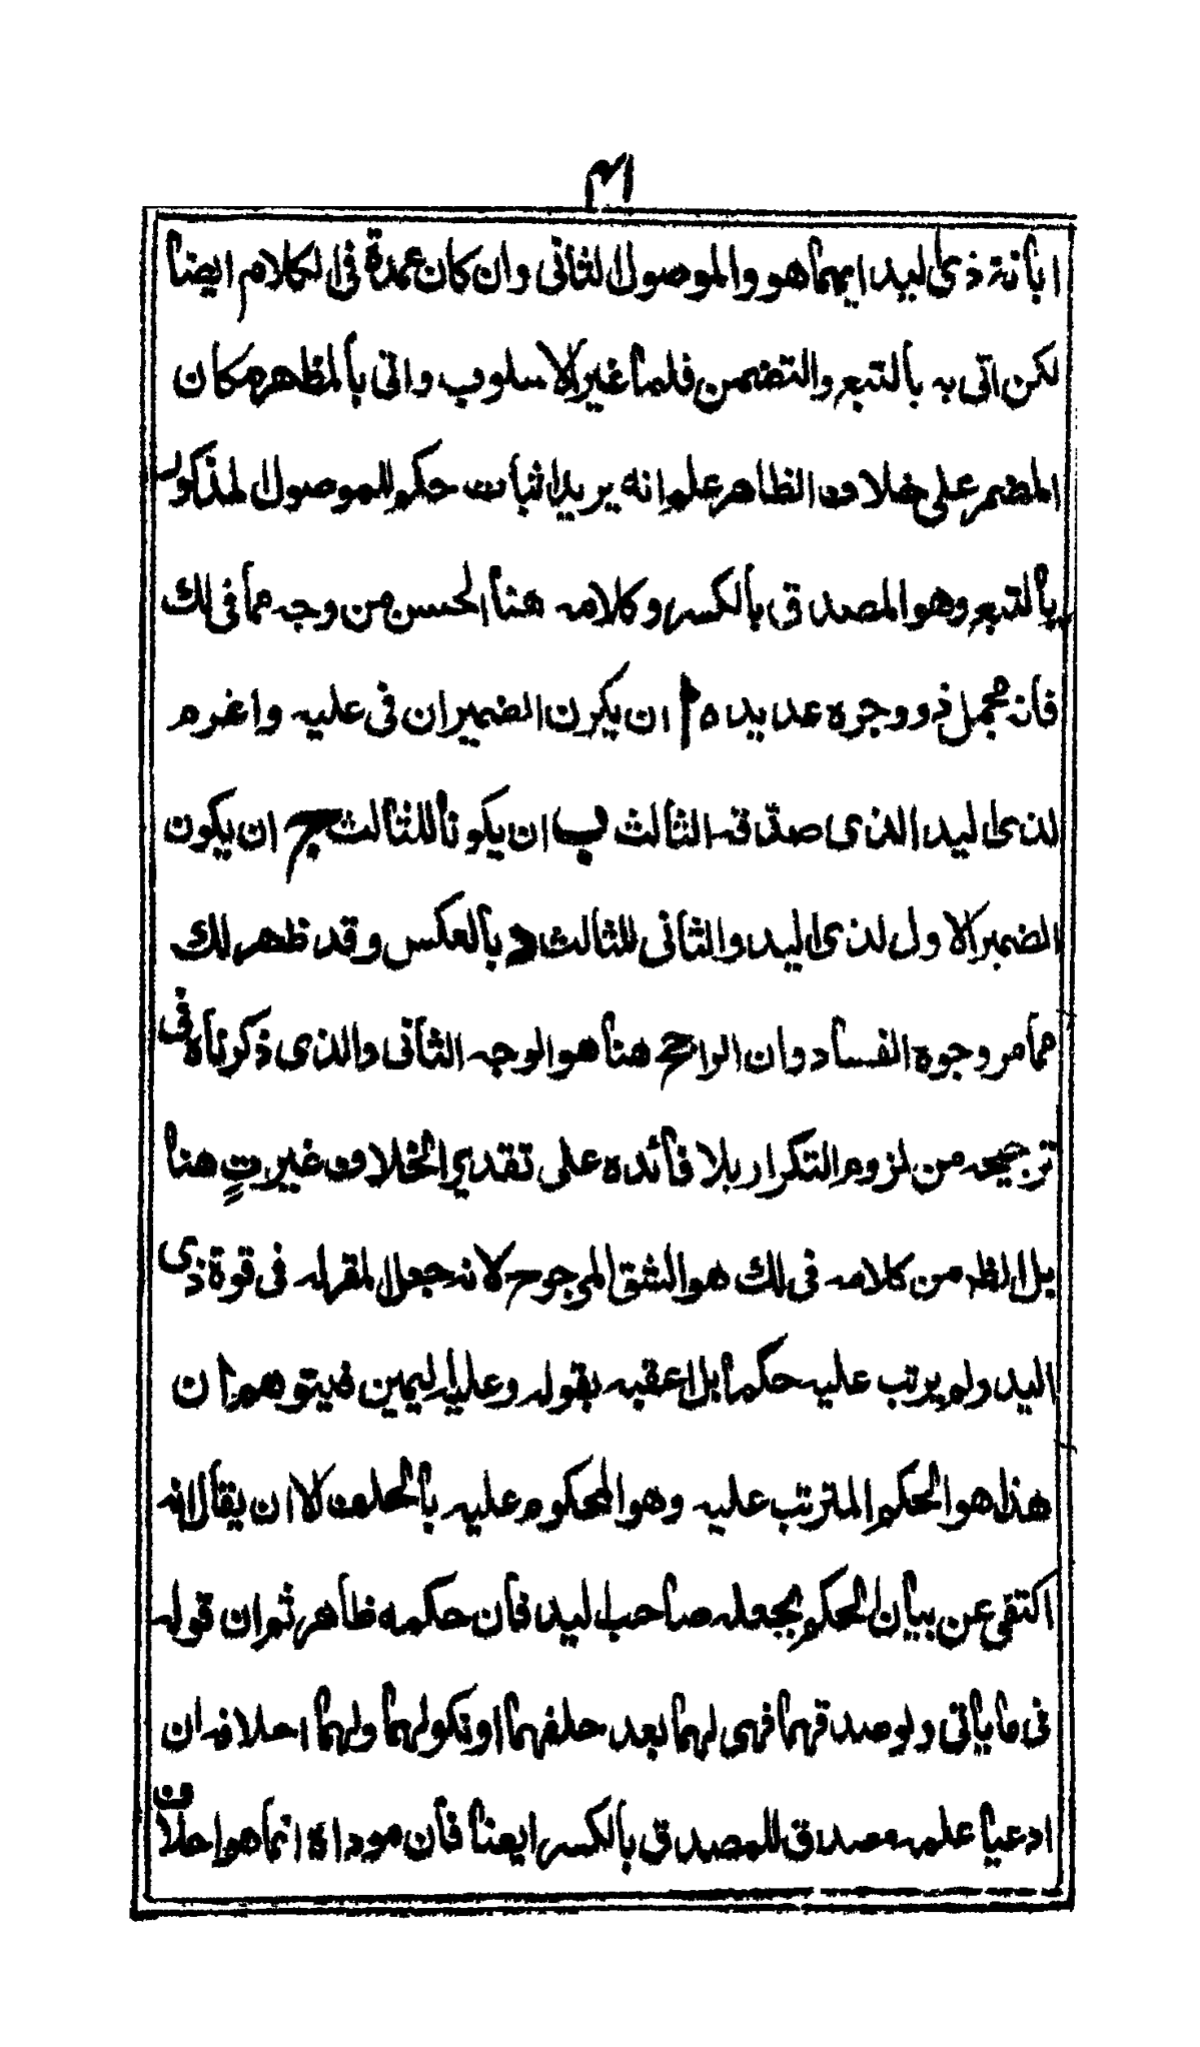 ٣١
ابانة ذى اليد ايهما هو والموصول الثانى وان كان عمدة فى الكلام ايضا
لكن اتى به بالتبع والتضمن فلما غير الاسلوب واتى بالمظهر مكان
المضمر على خلاف الظاهر علم انه يريد اثبات حكم للموصول المذكور
بالتبع وهو المصدق بالكسر وكلامه هنا الحسن من وجه مما فى لك
فانه مجمل ذو وجوه عديده ا ان يكون الضميران فى عليه واغرم
لذى اليد الذى صدّقه الثالث ب ان يكونا للثالث ج ان يكون
الضمير الاول لذى اليد والثانى للثالث د بالعكس وقد ظهر لك
مما مر وجوه الفساد وان الراجح هنا هو الوجه الثانى والذى ذكرناه فى
ترجيحه من لزوم التكرار بلا فائده على تقدير الخلاف غير ت هنا
بل الظ من كلامه فى لك هو الشق المرجوح لانه جعل المقر له فى قوة ذى
اليد ولم يرتب عليه حكما بل اعقبه بقوله وعليه اليمين فيتوهم ان
هذا هو الحكم المترتب عليه وهو المحكوم عليه بالحلف الا ان يقال انه
اكتفى عن بيان الحكم بجعله صاحب اليد فان حكمه ظاهر ثم ان قوله
فى ما ياتى ولو صدقهما فهى لهما بعد حلفهما او نكولهما ولهما احلافه ان
ادعيا علمه مصدق للمصدق بالكسر ايضا فان موداه انما هو احلاف